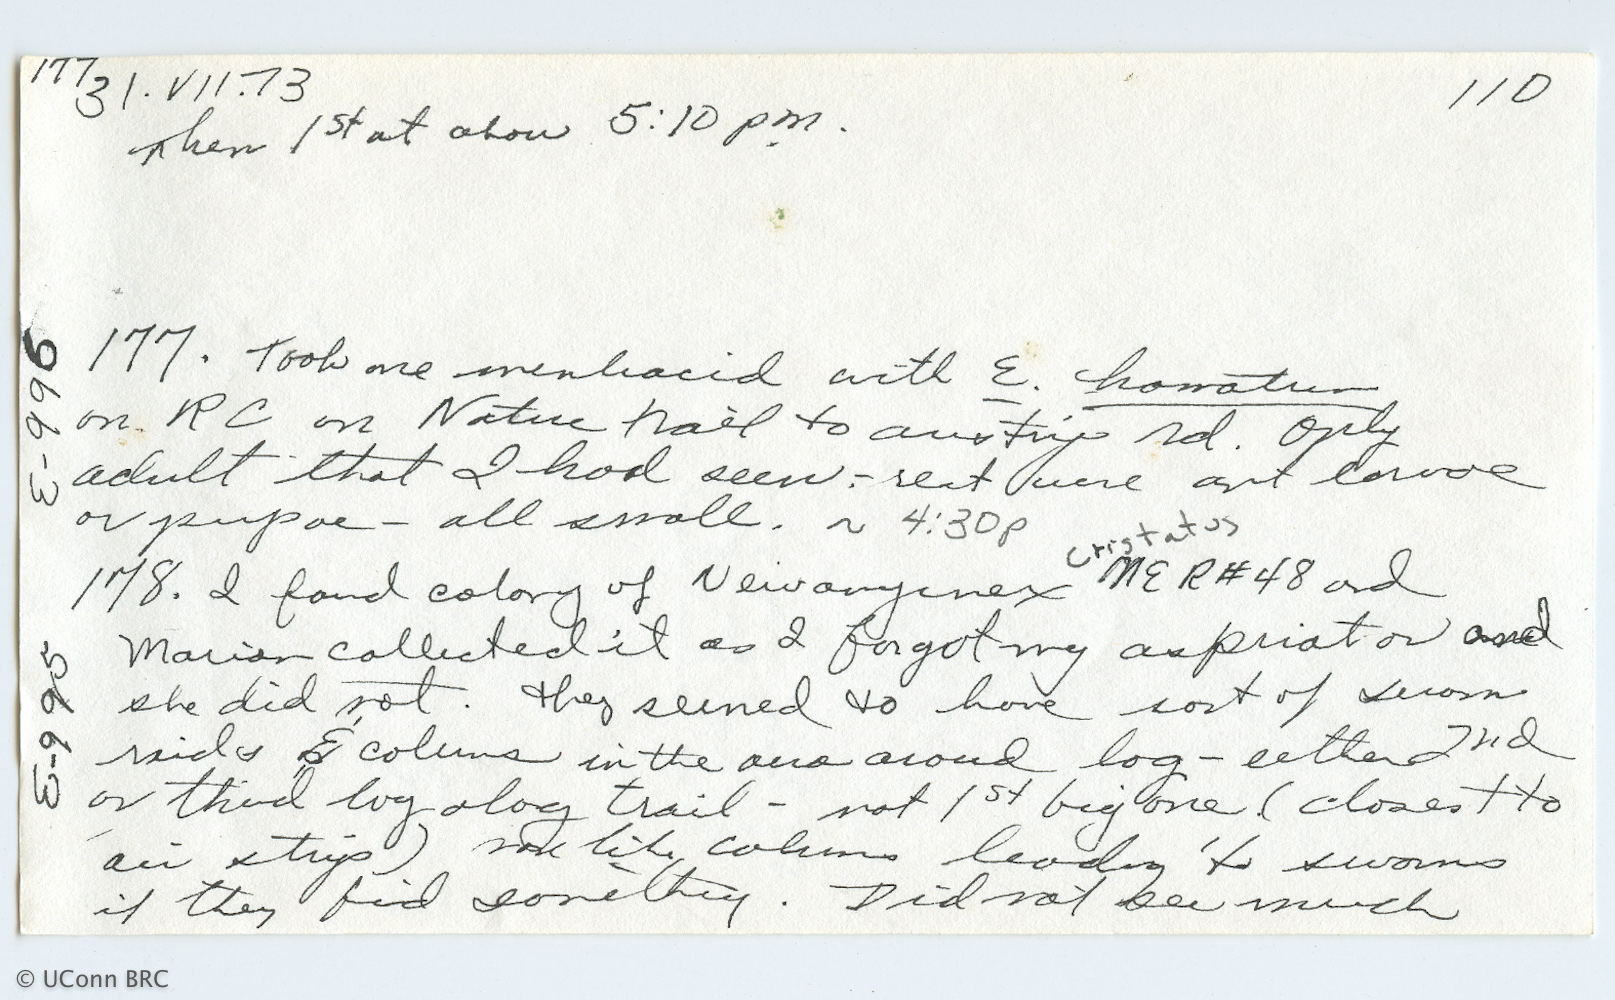 177
31.VII.73
110
then 1st at abou 5:10 pm.
177. Took one membracid with E. hamatum
on RC on Nature trail to airstrip rd. Only
adult that I had seen - rest were ant larvae
or pupae - all small. ~ 4:30p
cristatus
178. I found colony of Neivamyrmex NER#48 and
Marian collected it as I forgot my aspriator and
she did not. They seemed to have sort of swarm
raids & columns in the area around log - either 2nd
or third log along trail - not 1st big one (closest to
air strip) like columns leading to swarms
if they find something. Did not see much
E-996
E-995
© UConn BRC